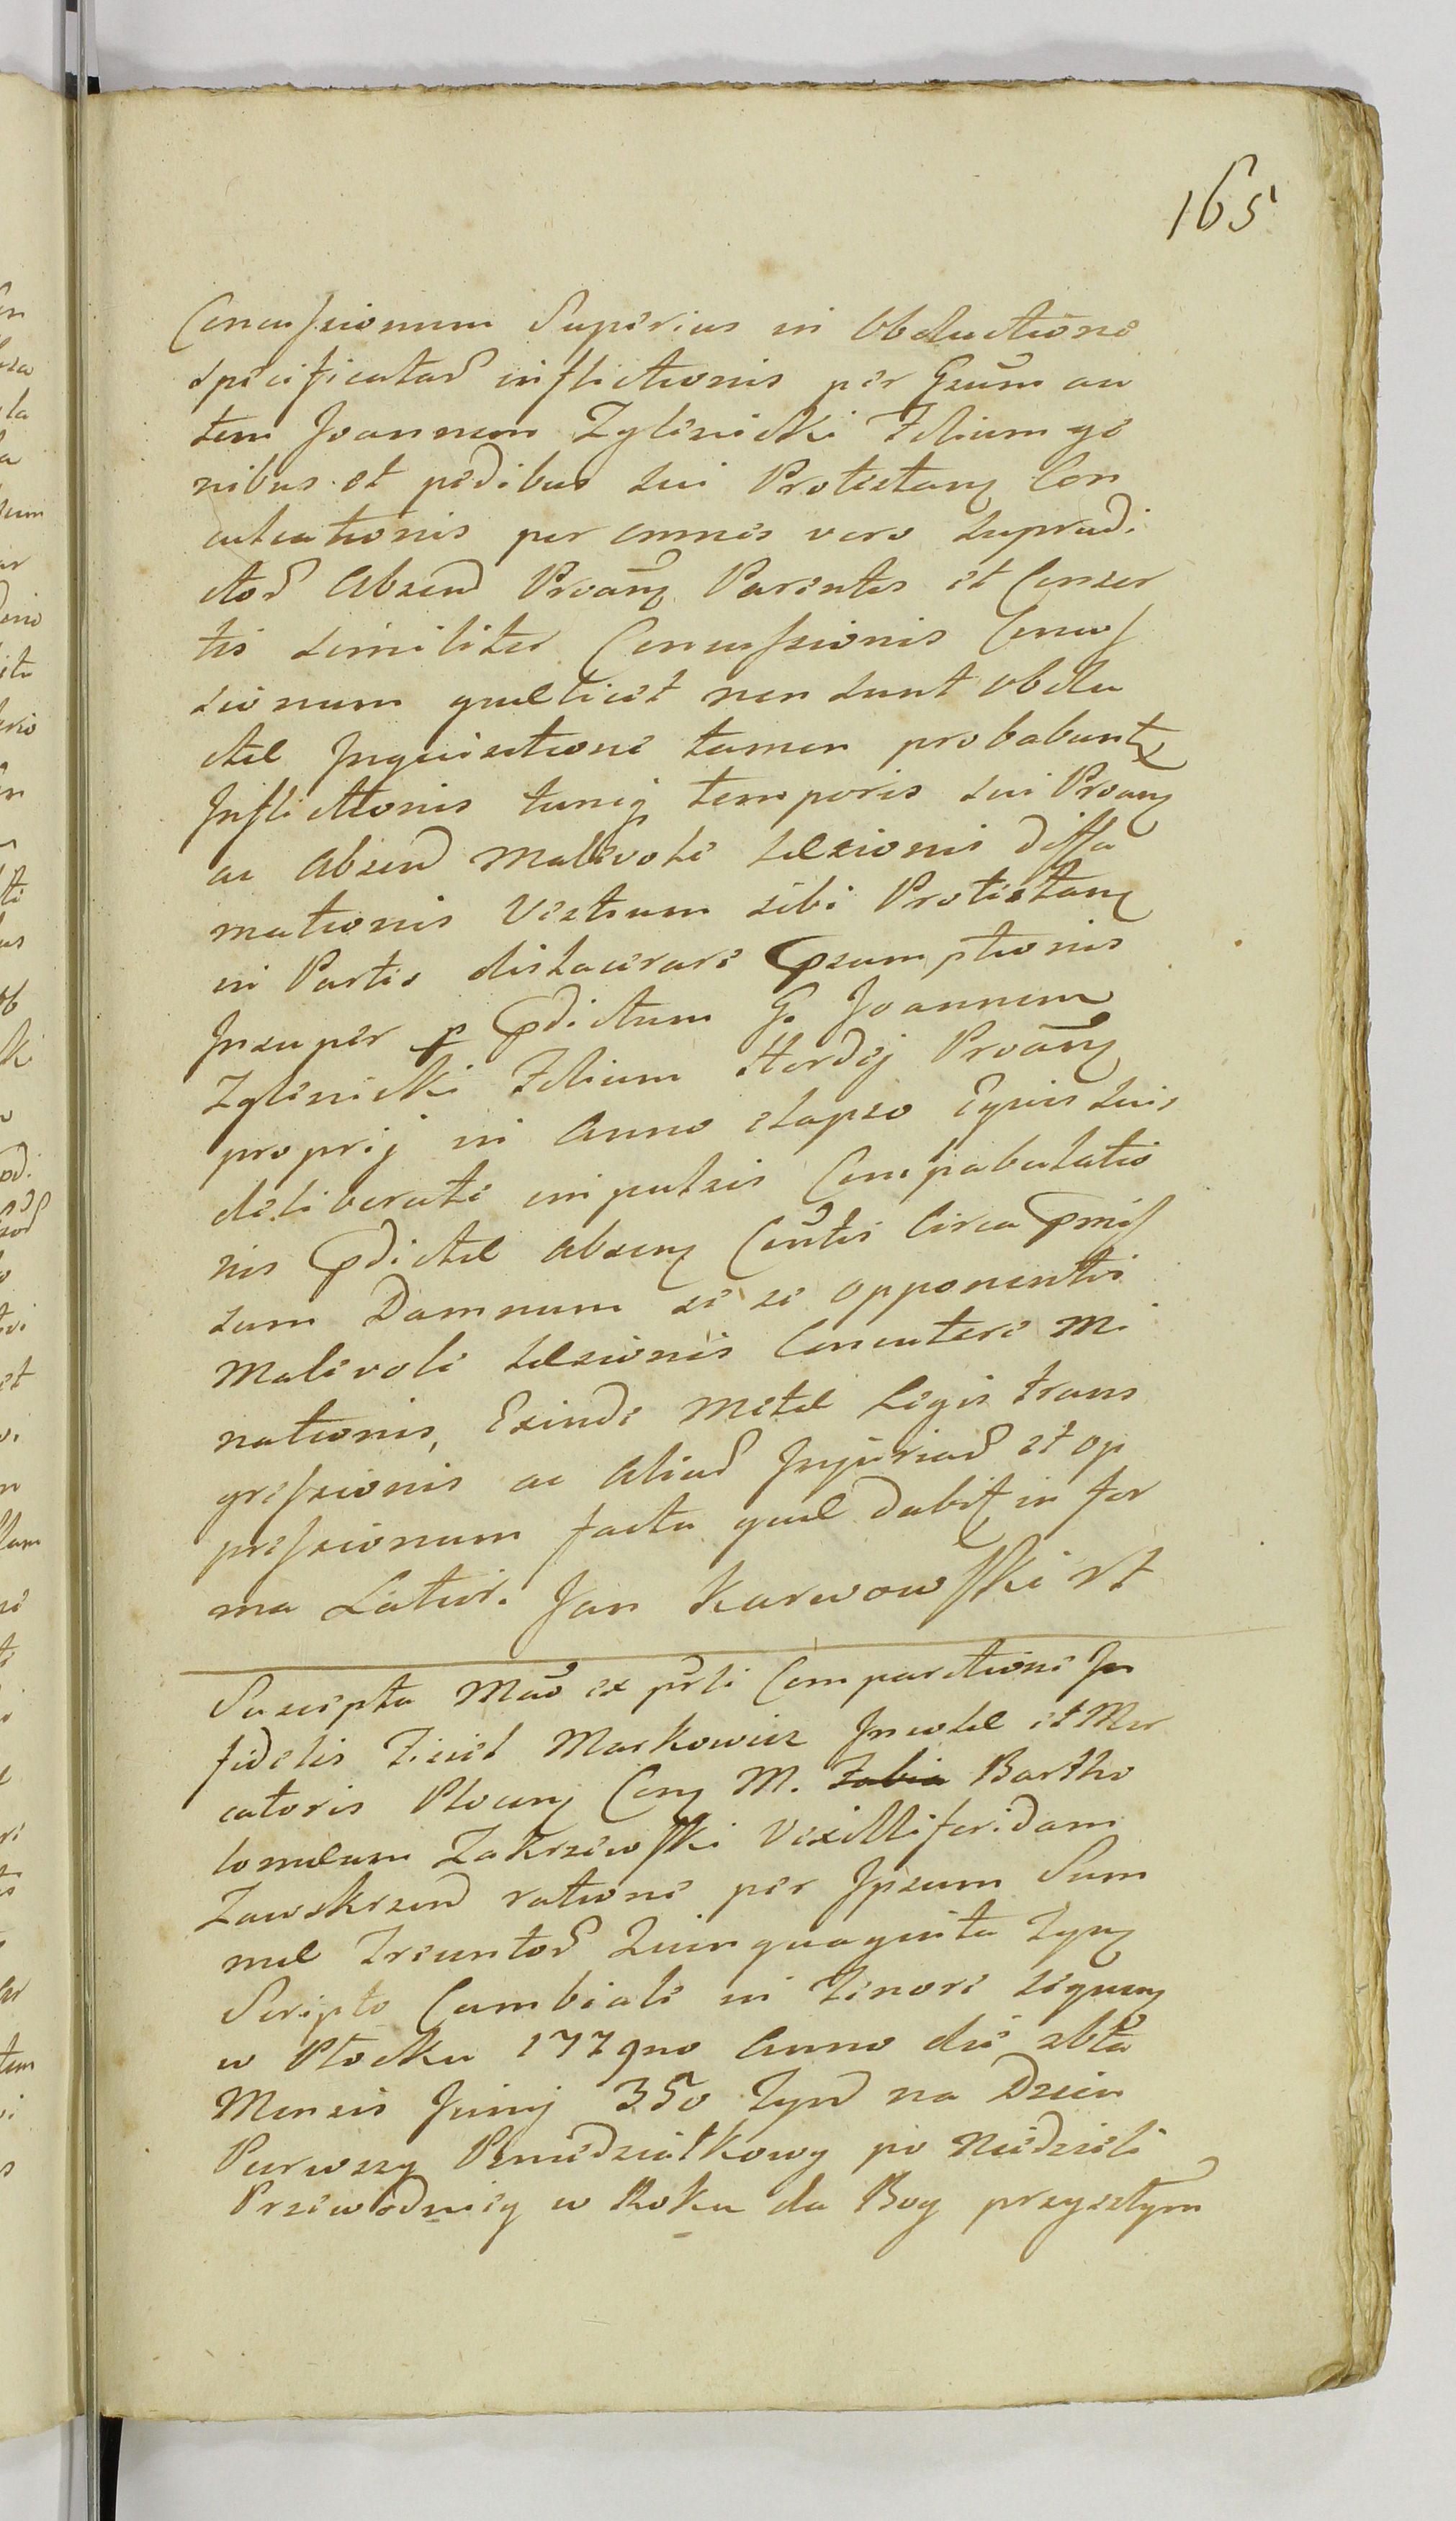 165
Concussionum Superius in Obductione
specificatar inflictionis per Gsum au
tem Joannem Zglinicki Filium ge
nibus et pedibus sui Protestang Con
culcationis per omnes vero supradi
ctos Absend Proang Parentis et Conser
tis similiter Concussionis Concus
sionum quae licet non sunt obdu
ctae Inquisitione tamen probabunt
Inflictionis tuniq temporis sui Proang
ac Absend Malevole laesionis diffa
mationis Vestium sibi Protestang
in Partes dislacerare psumptionis
Insuper p pdictum G. Joannem
Zglinicki Filium Hordej Proang
proprij in Anno elapso Equis suis
deliberate impulsis Compabulatio
nis pdictae Absenq Contis Circa pmis
sum Damnum se se opponentis
Malevole laesionis Concutere Mi
nationis, Exinde Metae Legis trans
gressionis ac Aliar Injuriar et op
pressionum facta quae dabit in for
ma Latior. Jan Karwowski rt
Suscepta Mao ex prli Comparitione In
fidelis Ziciel Markowicz Incolae et Mer
catoris Plocenq Conq M. Zabia Bartho
lomaeum Zakrzewski Vexilliferidam
Zawskrzend ratione per Ipsum Sum
mae Trecentor Quinquaginta Tynq
Scripto Cambiali in Tenore sequenq
w Płocku 1779no Anno die 26ta
Mensis Junij 350 Tynd na Dzien
Pierwszy Poniedziałkowy po Niedzieli
Przewodniey w Roku da Bog przyszłym